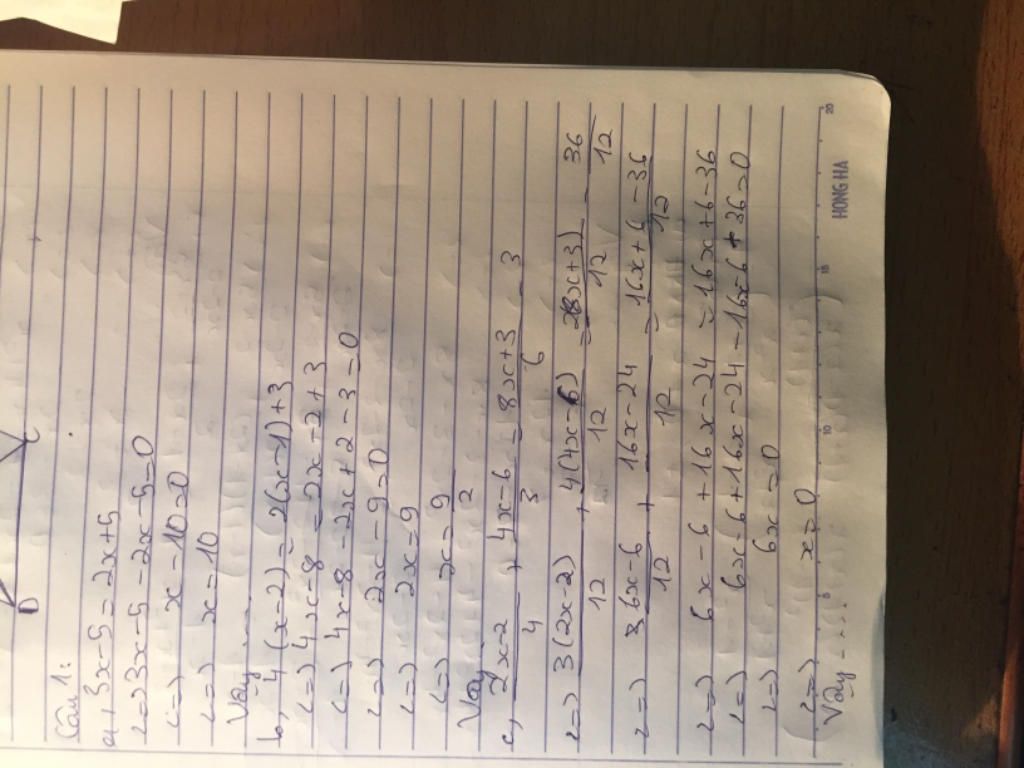 D C
Câu 1:
a, 3x-5=2x+5
<=> 3x-5-2x-5=0
<=> x-10=0
<=> x=10
Vậy ....
b, 4(x-2)=2(x-1)+3
<=> 4x-8=2x-2+3
<=> 4x-8-2x+2-3=0
<=> 2x-9=0
<=> 2x=9
<=> x=9/2
Vậy
c, (2x-2)/4 + (4x-6)/3 = (8x+3)/6 - 3
<=> 3(2x-2)/12 + 4(4x-6)/12 = 2(8x+3)/12 - 36/12
<=> (6x-6)/12 + (16x-24)/12 = (16x+6-36)/12
<=> 6x-6+16x-24=16x+6-36
<=> 6x-6+16x-24-16x-6+36=0
<=> 6x=0
<=> x=0
Vậy ....
5 10 15 20
HONG HA